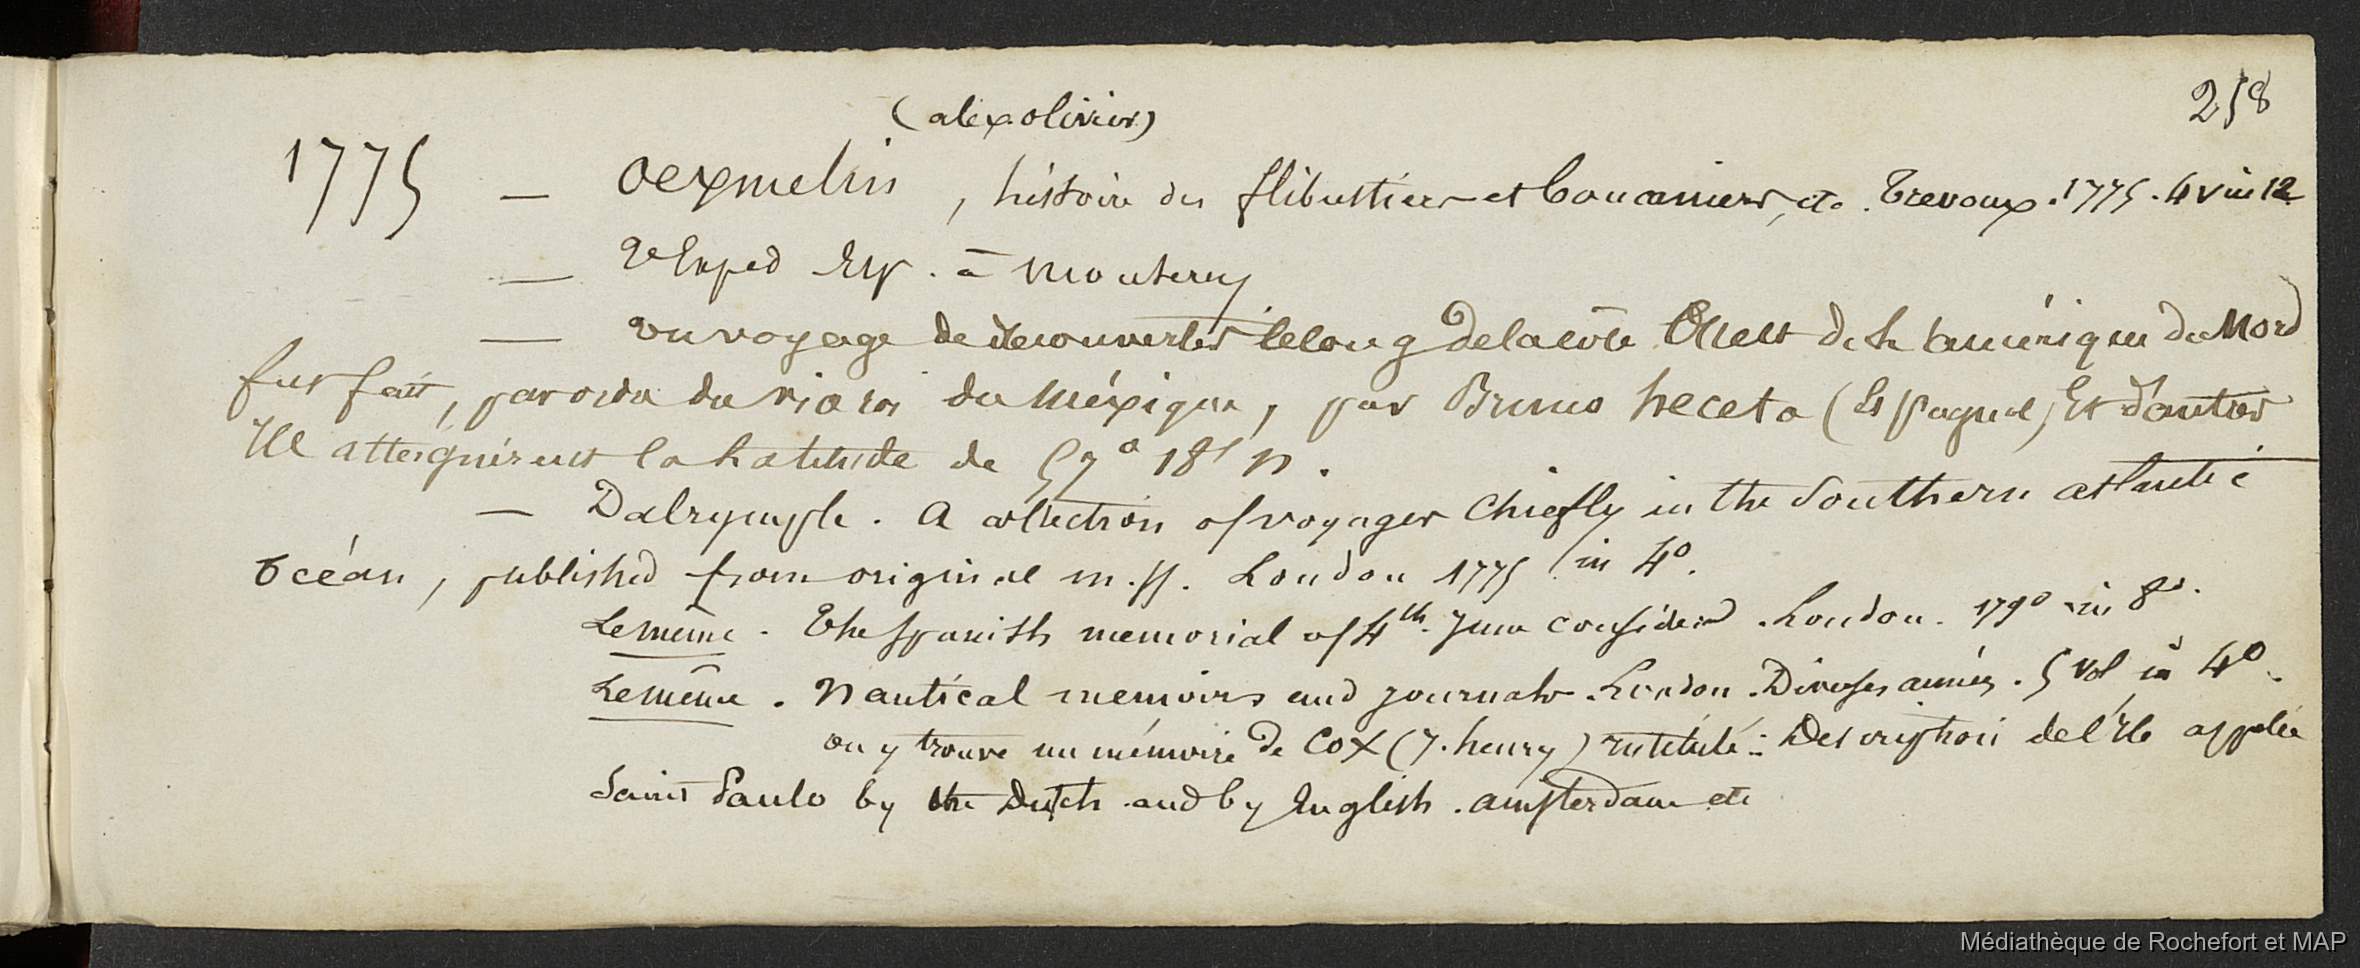 258
(alex olivier)
1775 — Oexmelin, histoire des flibustiers et boucaniers, etc. Trevoux. 1775. 4 v in 12
— 2e Exped Esp. à Monterey
— un voyage de découvertes le long de la côte Ouest de l'amérique du Nord
fut fait, par ordre du vice roi du Méxique, par Bruno heceta (Espagnol) Et d'autres
Ils atteignirent la Latitude de 57° 18' N.
— Dalrymple. A collection of voyages Chiefly in the Southern atlantic
Océan, published from original m.ss. London 1775 in 4°.
Le même. The Spanish memorial of 4th June considered. London. 1790 in 8°.
Le même. Nautical memoirs and journals. London. Diverses années. 5 vol in 4°.
on y trouve un mémoire de Cox (J. henry) intitulé: Description de l'île appelée
Saint Paulo by the Dutch and by English. amsterdam etc
Médiathèque de Rochefort et MAP